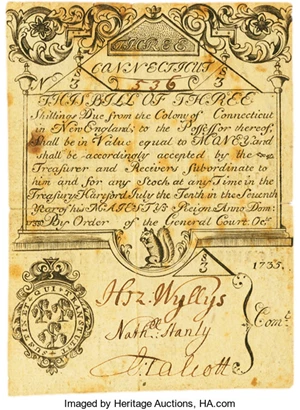 THREE
S/3
CONNECTICUT
S/3
536
THIS BILL OF THREE
Shillings Due from the Colony of Connecticut
in New England, to the Possessor thereof,
Shall be in Value equal to MONEY and
shall be accordingly accepted by the
Treasurer and Receivers Subordinate to
him and for any Stock at any Time in the
Treasury Hartford July the Tenth in the Seventh
Year of his MAJESTYS Reign Anno Dom:
By Order of the General Court.
S/3
S/3
1735.
QUI TRANSTULIT SUSTINET
Hez. Wyllys
Nath:ll Stanly
J Talcott
Comte
Imaged by Heritage Auctions, HA.com